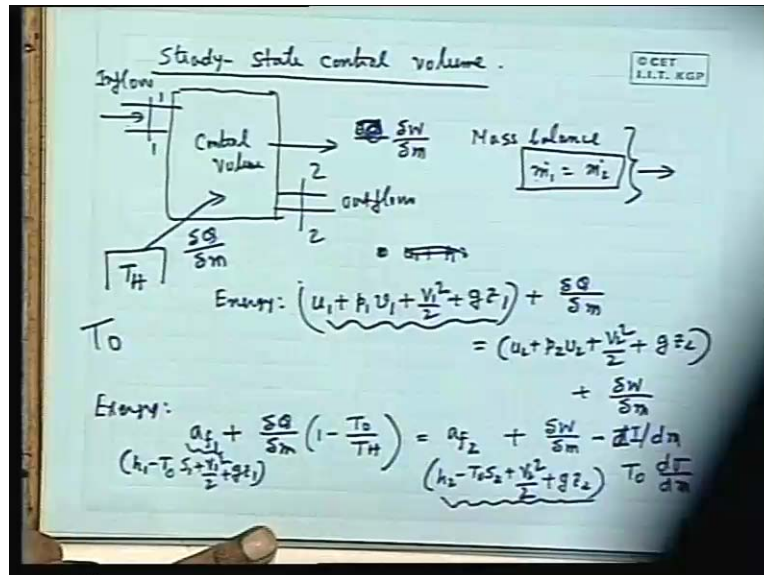 Steady-State control volume.
© CET
I.I.T. KGP
Inflow
1
1
Control
Volume
δW/δm
Mass balance
ṁ₁ = ṁ₂
2
outflow
2
δQ/δm
T_H
T₀
Energy: (u₁ + p₁v₁ + V₁²/2 + gz₁) + δQ/δm
= (u₂ + p₂v₂ + V₂²/2 + gz₂)
+ δW/δm
Exergy:
a_f₁ + δQ/δm (1 - T₀/T_H) = a_f₂ + δW/δm - dI/dm
(h₁-T₀S₁+V₁²/2+gz₁) (h₂-T₀S₂+V₂²/2+gz₂) T₀ dσ/dm